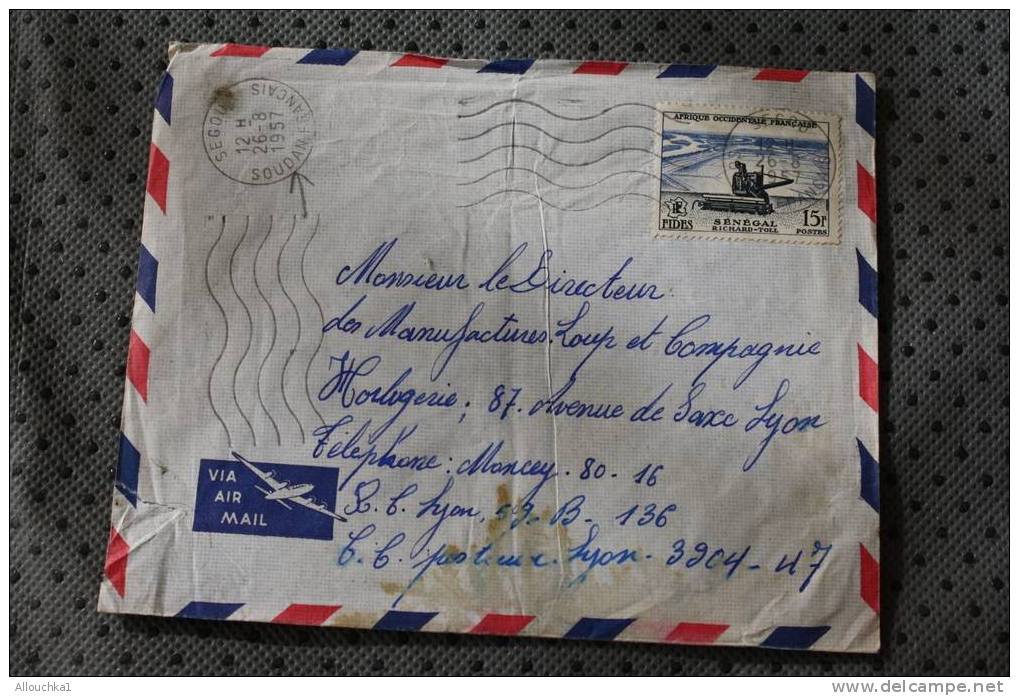 SEGOU
SOUDAN FRANCAIS
12 H
26-8
1957
AFRIQUE OCCIDENTALE FRANÇAISE
12 H
26-8
1957
FIDES
SÉNÉGAL
RICHARD-TOLL
15F
POSTES
Monsieur le Directeur
des Manufactures Loup et Compagnie
Horlogerie, 87. Avenue de Saxe Lyon
Téléphone: Moncey. 80-16
R.C. Lyon, 59-B-136
C.C. postaux. Lyon. 3904-47
VIA
AIR
MAIL
Allouchka1
www.delcampe.net